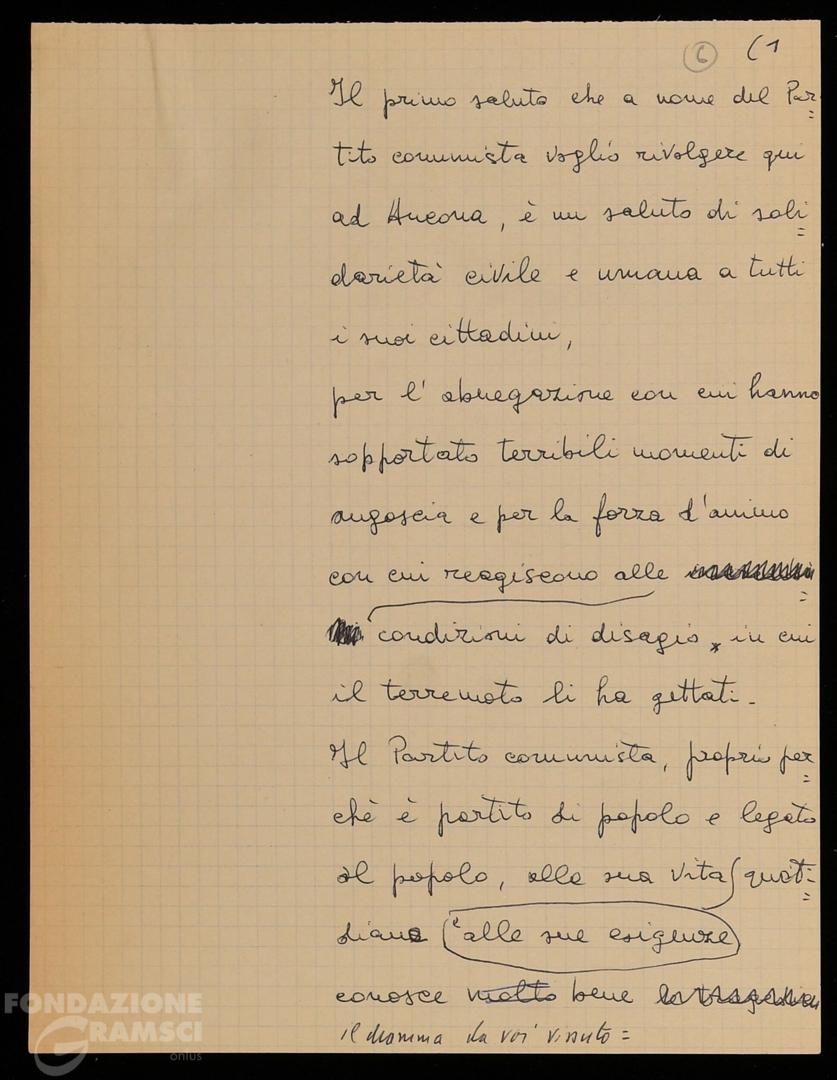 6 (1
Il primo saluto che a nome del Par=
tito comunista voglio rivolgere qui
ad Ancona, è un saluto di soli=
darietà civile e umana a tutti
i suoi cittadini,
per l'abnegazione con cui hanno
sopportato terribili momenti di
angoscia e per la forza d'animo
con cui reagiscono alle
condizioni di disagio, in cui
il terremoto li ha gettati.
Il Partito comunista, proprio per=
chè è partito di popolo e legato
al popolo, alla sua vita quoti=
diana e alle sue esigenze
conosce molto bene la tragedia
il dramma da voi vissuto=
FONDAZIONE
GRAMSCI
onlus